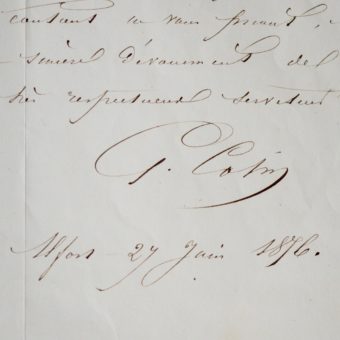 contant a vous
sincère dévouement de
très respectueux serviteur
G. Colin
Alfort 27 Juin 1876.